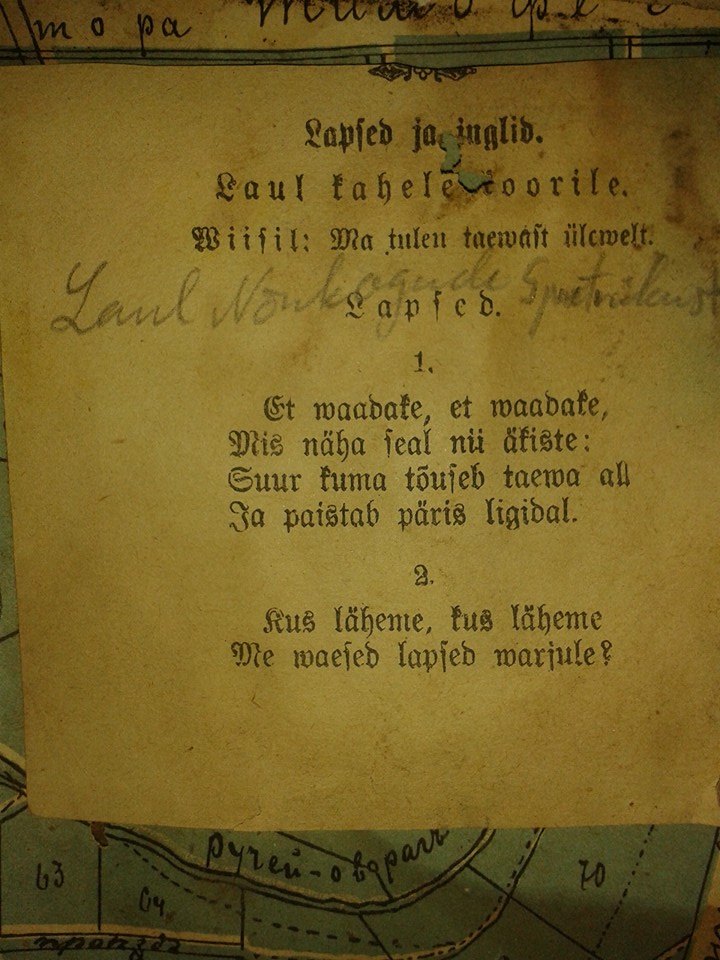 тора
Lapsed ja inglid.
Laul kahele koorile.
Wiisil: Ma tulen taewast ülewelt.
Laul
Lapsed.
1.
Et waadake, et waadake,
Mis näha seal nii äkiste:
Suur kuma tõuseb taewa all
Ja paistab päris ligidal.
2.
Kus läheme, kus läheme
Me waesed lapsed warjule?
ручей-оврагъ
63
64
70